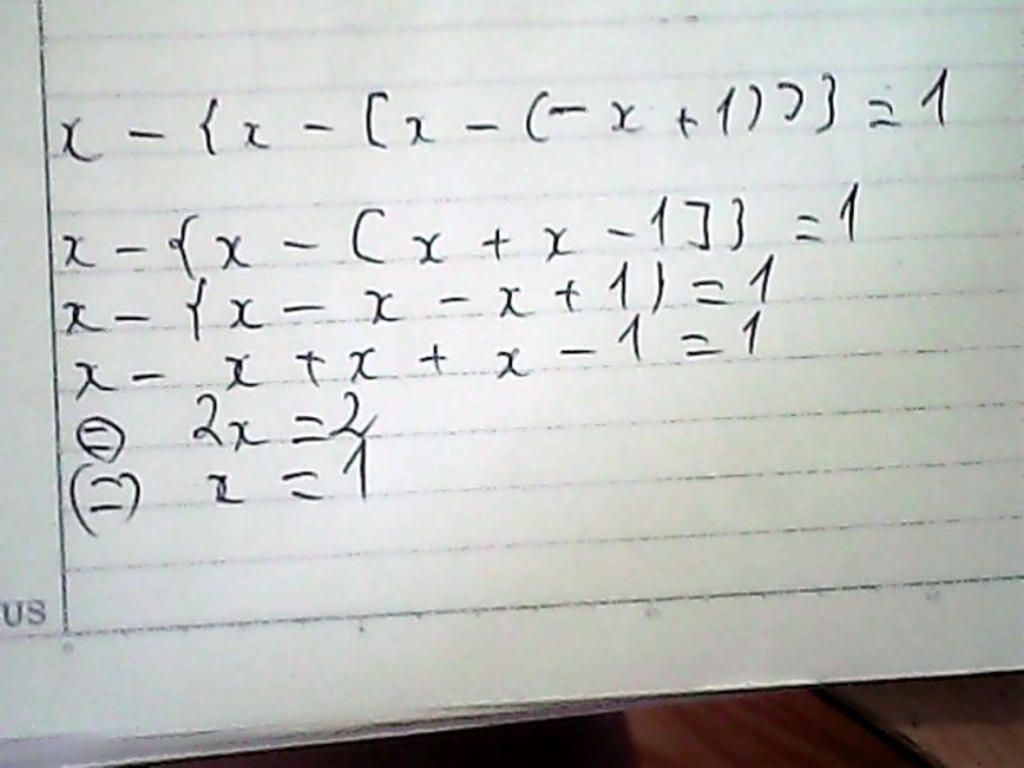 x - {x - [x - (-x + 1)]} = 1
x - {x - [x + x - 1]} = 1
x - {x - x - x + 1} = 1
x - x + x + x - 1 = 1
(=) 2x = 2
(=) x = 1
US